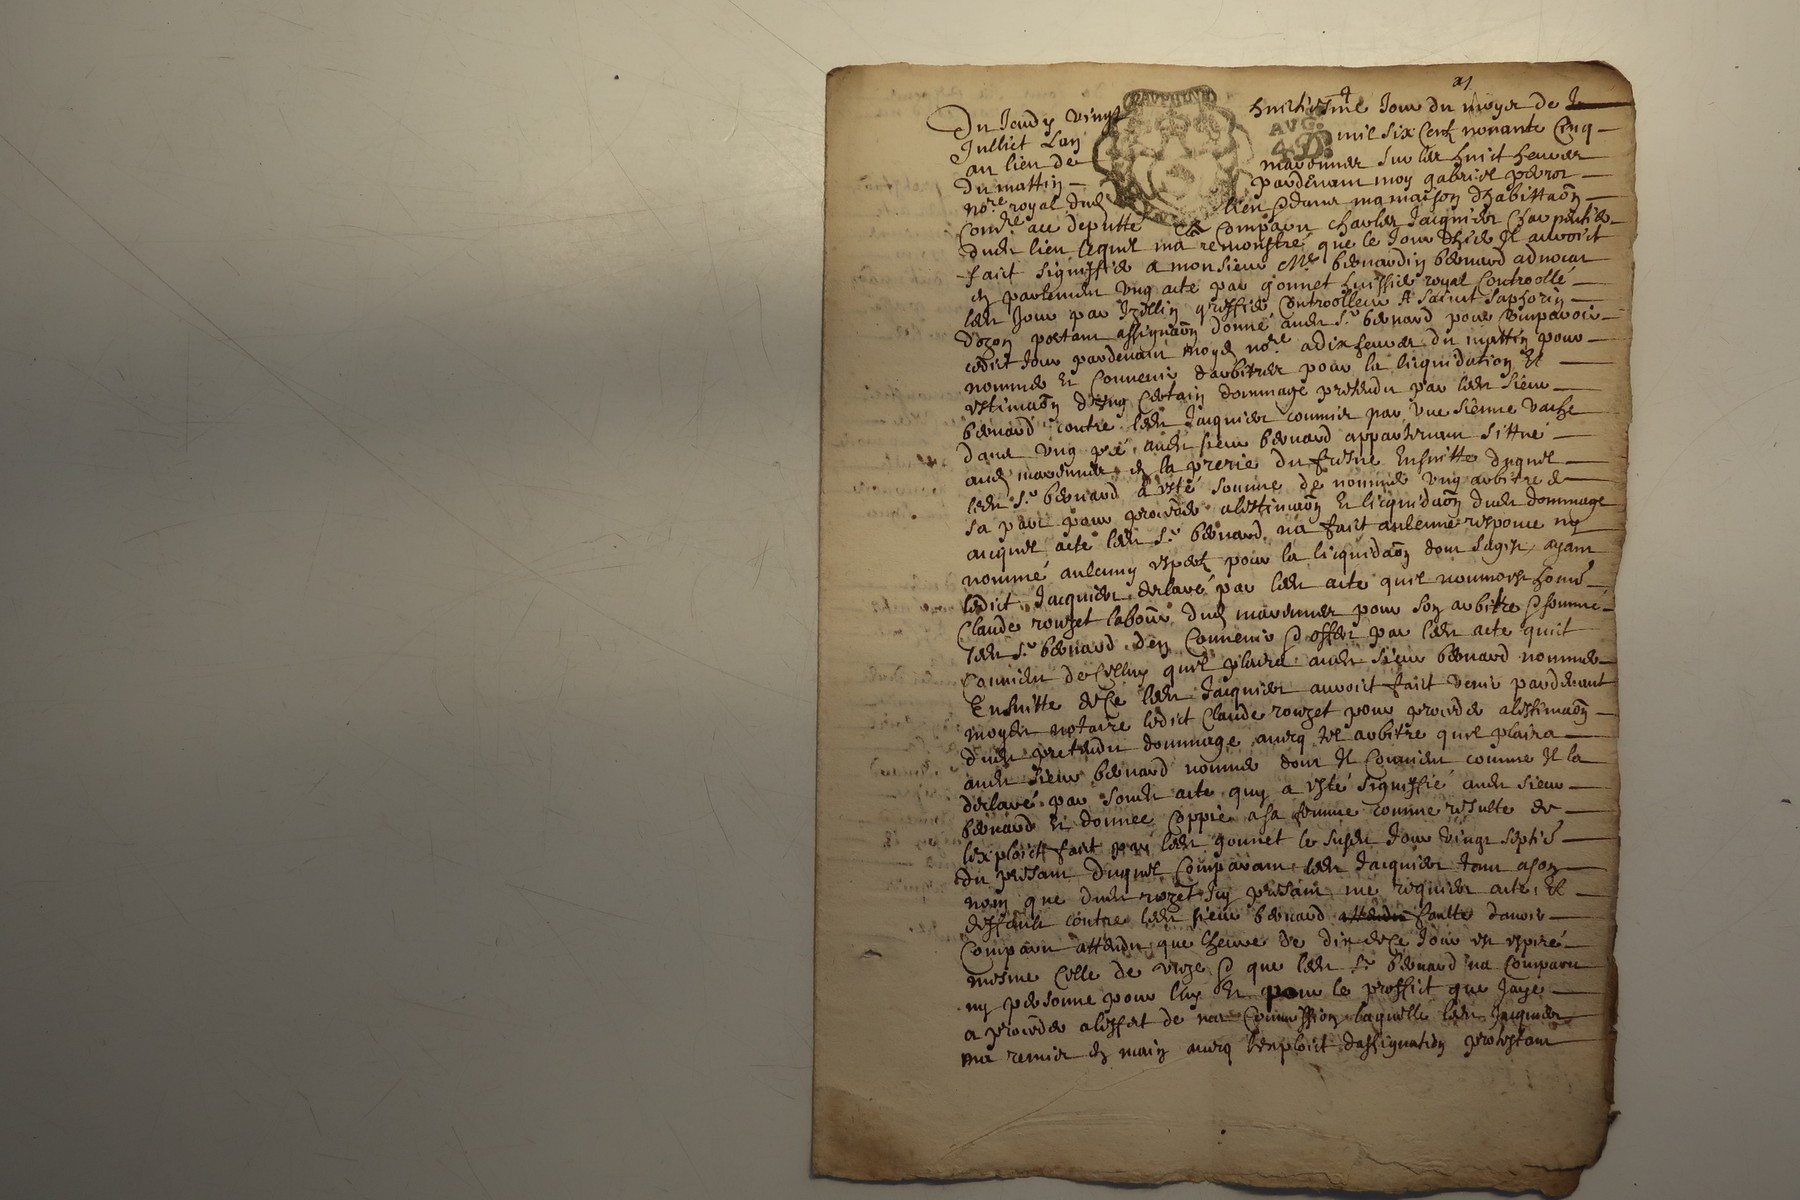 Du Jeudy vingt huictiesme Jour du moys de
DAVPHINÉ
AVG.
4.D.
Julliet L'an mil six cent nonante cinq
au lieu de marennes sur les huict heures
du mattin pardevant moy gabriel perrot
no.re royal dud lieu & dans ma maison d'habittaõn
com.re ace deputté Est Comparu charles Jacquier Charpentier
dudit lieu lequel ma remonstré que le Jour d'hier Il auroict
faict signiffier a monsieur Me bernardin bernard advocat
en parlement ung acte par gonnet huissier royal Controollé
led Jour par greffier Controolleur A sainct Saphorin
d'ozon portant assignaõn donné aud Sr bernard pour Comparoir
cedict Jour pardevant moyd no.re a dix heures du mattin pour
nommer Et Convenir d'arbitres pour la licquidation Et
estimaõn d'ung certain dommage pretendu par led sieur
bernard contre led Jacquier commis par une sienne vache
dans ung pré aud sieur bernard appartenant sittué
aud marennes en la prerie du fresne Ensuitte duquel
led Sr bernard a esté sommé de nommer ung arbitre de
sa part pour proceder a l'estimaõn Et licquidaõn dud dommage
auquel acte led Sr bernard na faict aulcune response ny
nommé aulcung expert pour la licquidaõn dont sagist, ayant
ledict Jacquier declaré par led acte quil nommoit honn.
Claude rouzet labour. dud marennes pour son arbitre & sommé
led Sr bernard d'en Convenir & offert par led acte quil
Convient de celluy quil plaira aud sieur bernard nommer
Ensuitte de Ce led Jacquier auroit faict venir pardevant
moyd notaire ledict Claude rouzet pour proceder a l'estimaõn
dud pretendu dommage avecq tel arbitre quil plaira
aud sieur bernard nommer dont Il Convient comme Il la
declaré par sond acte quy a esté signiffié aud sieur
bernard Et donnee Coppie a sa femme comme resulte de
l'exploict faict par led gonnet le susd Jour vingt septie.
du presant duquel Comparant led Jacquier tant a son
nom que dud rozet Icy presant me requier acte Et
deffault contre led sieur bernard faulte d'avoir
Comparu attendu que l'heure de dix de ce Jour est expiré
mesme Celle de unze & que led Sr bernard na Comparu
ny personne pour luy Et pour le proffict que Jaye
a proceder a l'effect de ma Commission laquelle led Jacquier
ma remise en main avecq l'exploict d'assignation protestant